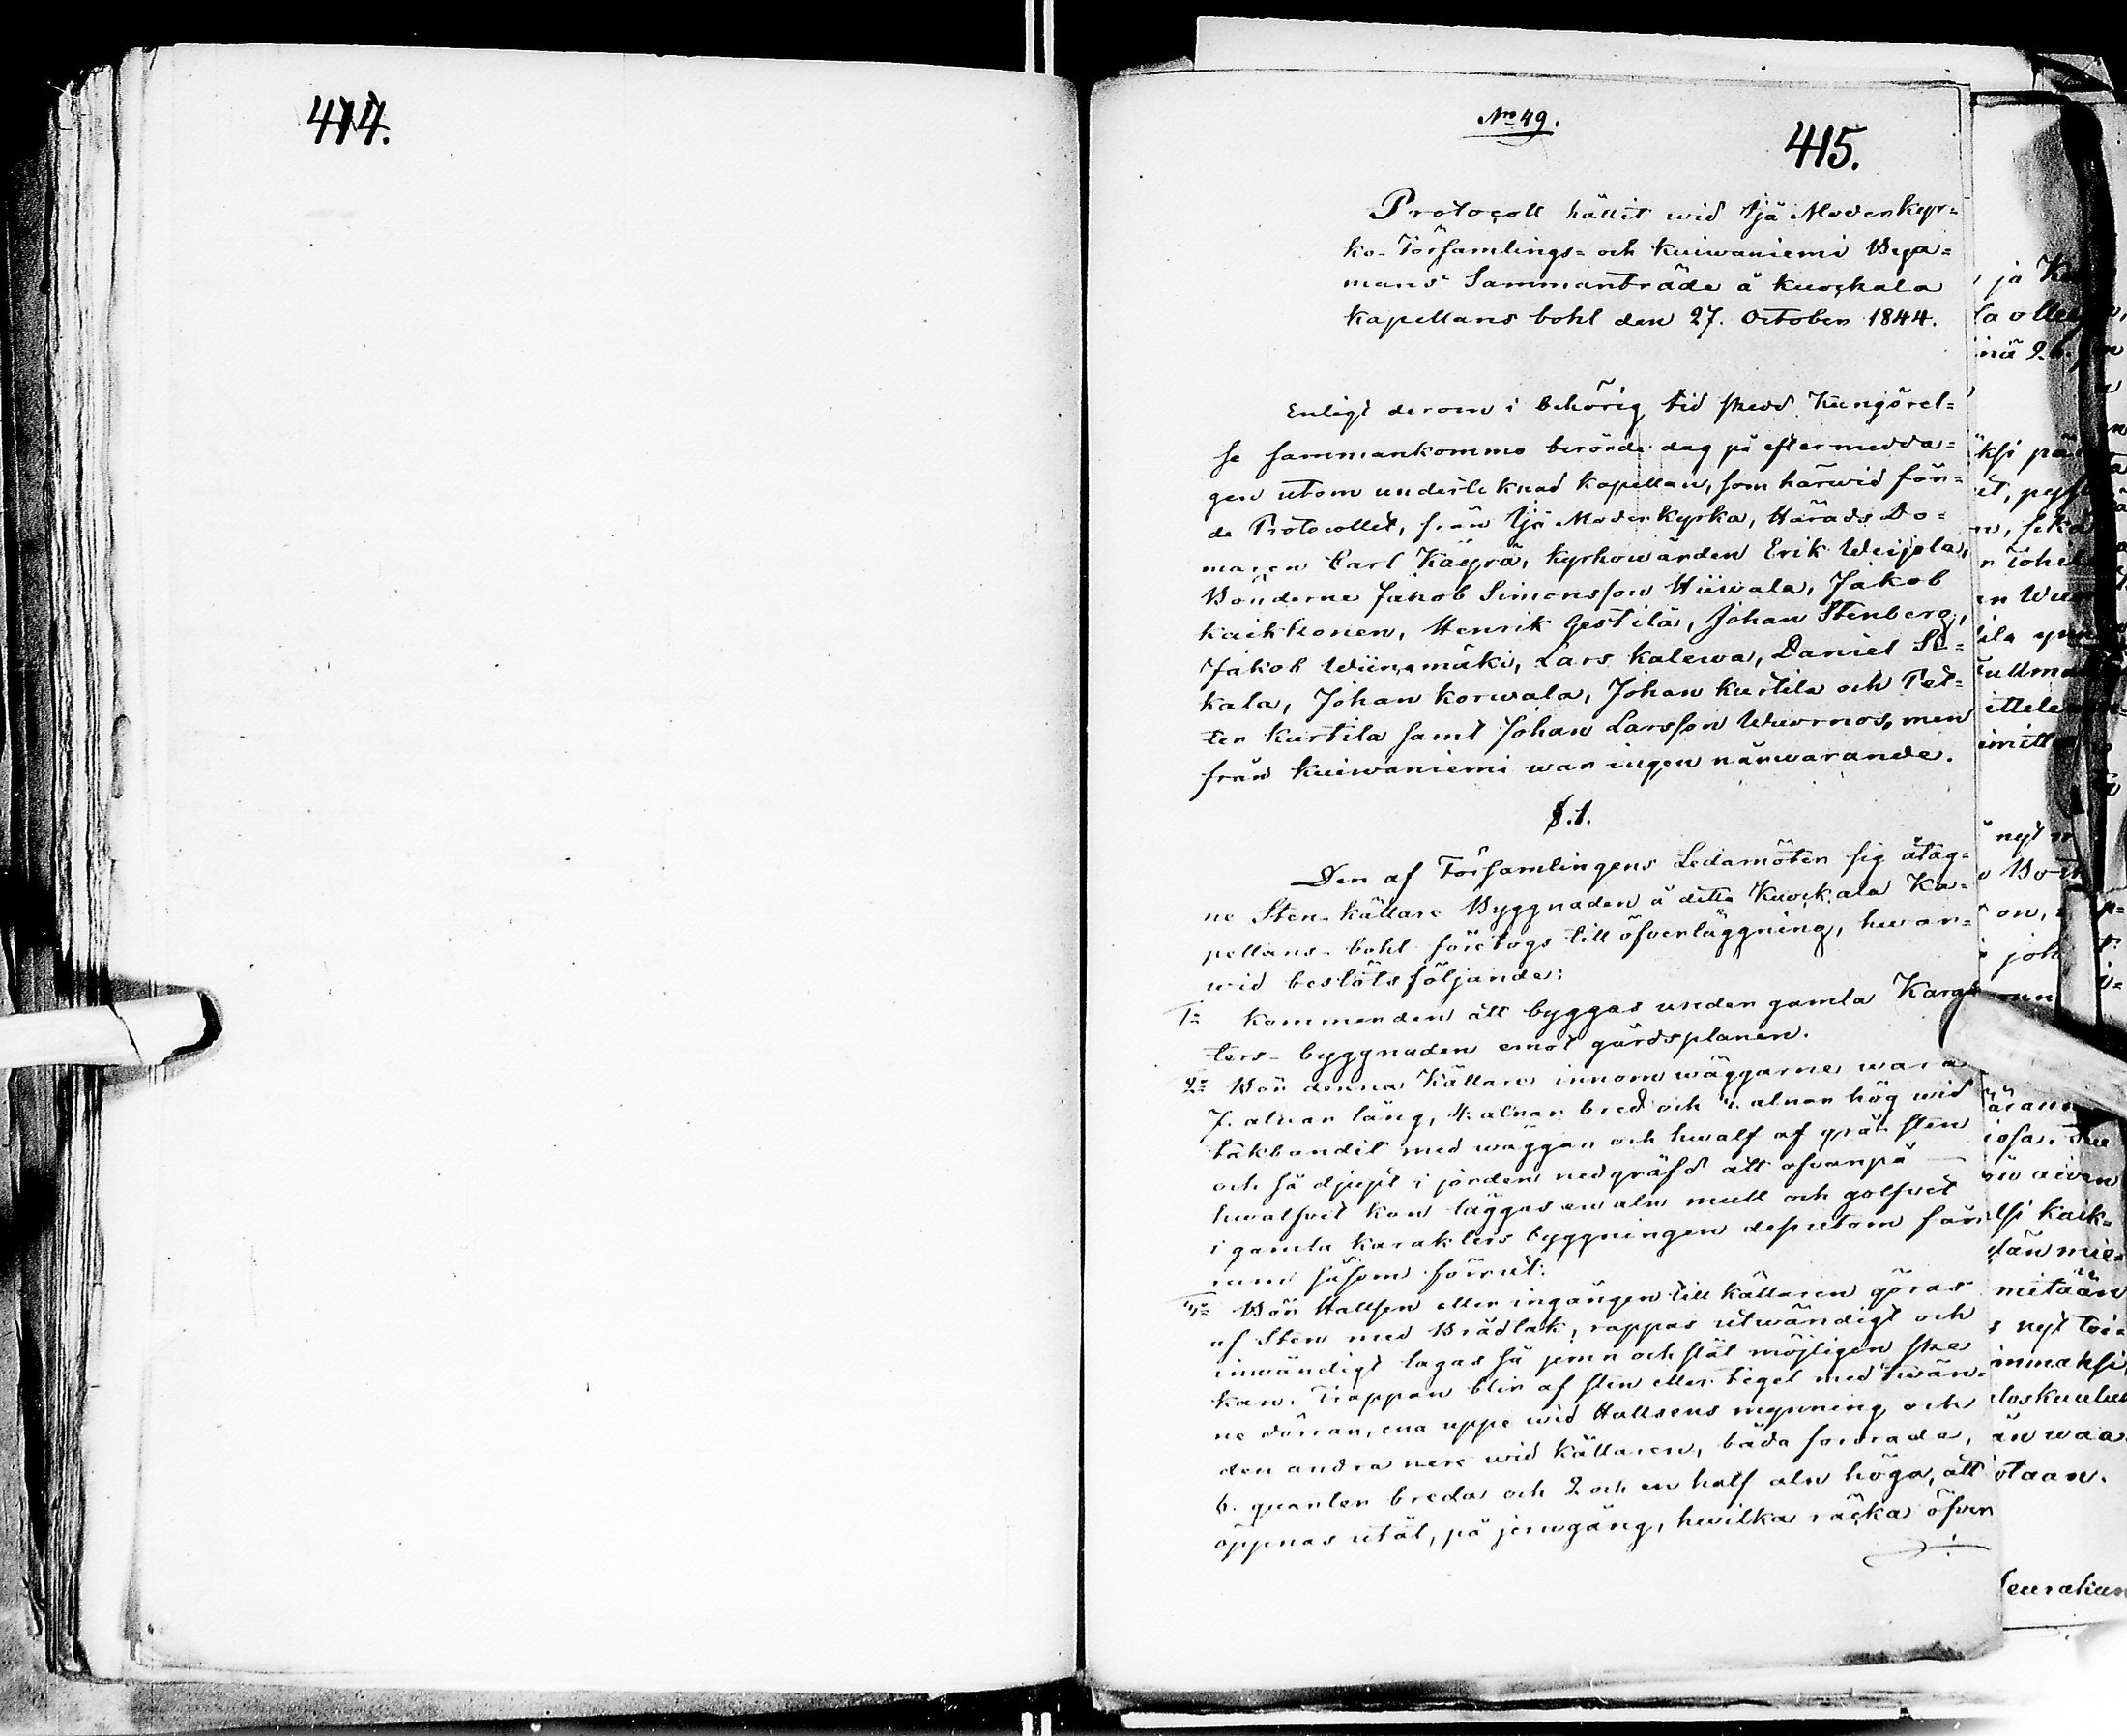 414.
No 49.
415.
Protocoll hållit wid Ijå Moderkyr=
ko-Församlings= och Kuiwaniemi Bya=
mans Sammanträde å Kuockala
Kapellans bohl den 27. October 1844.
Enligt derom i behörig tid skedd Kungörel=
se sammankommo berörde dag på eftermidda=
gen utom undertecknad Kapellan, som härwid för=
de Protocollet, från Ijå Moderkyrka, Härads Do=
maren Carl Käyrä, Kyrkowärden Erik Weijola,
Bönderne Jakob Simonsson Hiiwala, Jakob
Kaiktonen, Henrik Gestilä, Johan Stenberg,
Jakob Wiinamäki, Lars Kalewa, Daniel Se=
kala, Johan Korwala, Johan Kurtila och Pet=
ter Kurtila samt Johan Larsson Wuornos, men
från Kuiwaniemi war ingen närwarande.
§.1.
Den af Församlingens Ledamöter sig åtag=
ne Sten-källare Byggnaden å detta Kuockala Ka=
pellans-bohl företogs till öfverläggning, hwar=
wid beslöts följande:
1= Kommer den att byggas under gamla Karak
ters-byggnaden emot gårdsplanen.
2= Bör denna Källare innom wäggarne wara
7. alnar lång, 4. alnar bred och 4. alnar hög wid
takbandet med wäggar och hwalf af grå sten
och så djupt i jorden nedgräfd att ofvanpå
hwalfvet kan läggas en aln mull och golfvet
i gamla karakters byggningen desutom får
rum såsom förrut.
3= Bör Hallsen eller ingången till källaren göras
af Sten med Brädtak, rappas utwändigt och
inwändigt lagas så jemn och slät möjligen ske
kan. Trappan blir af sten eller tegel med twän=
ne dörrar, ena uppe wid Hallsens mynning och
den andra nere wid källaren, båda fodrade,
6. quarter breda och 2 och en half aln höga, att
öppnas utåt, på jerngång, hwilka räcka öfver